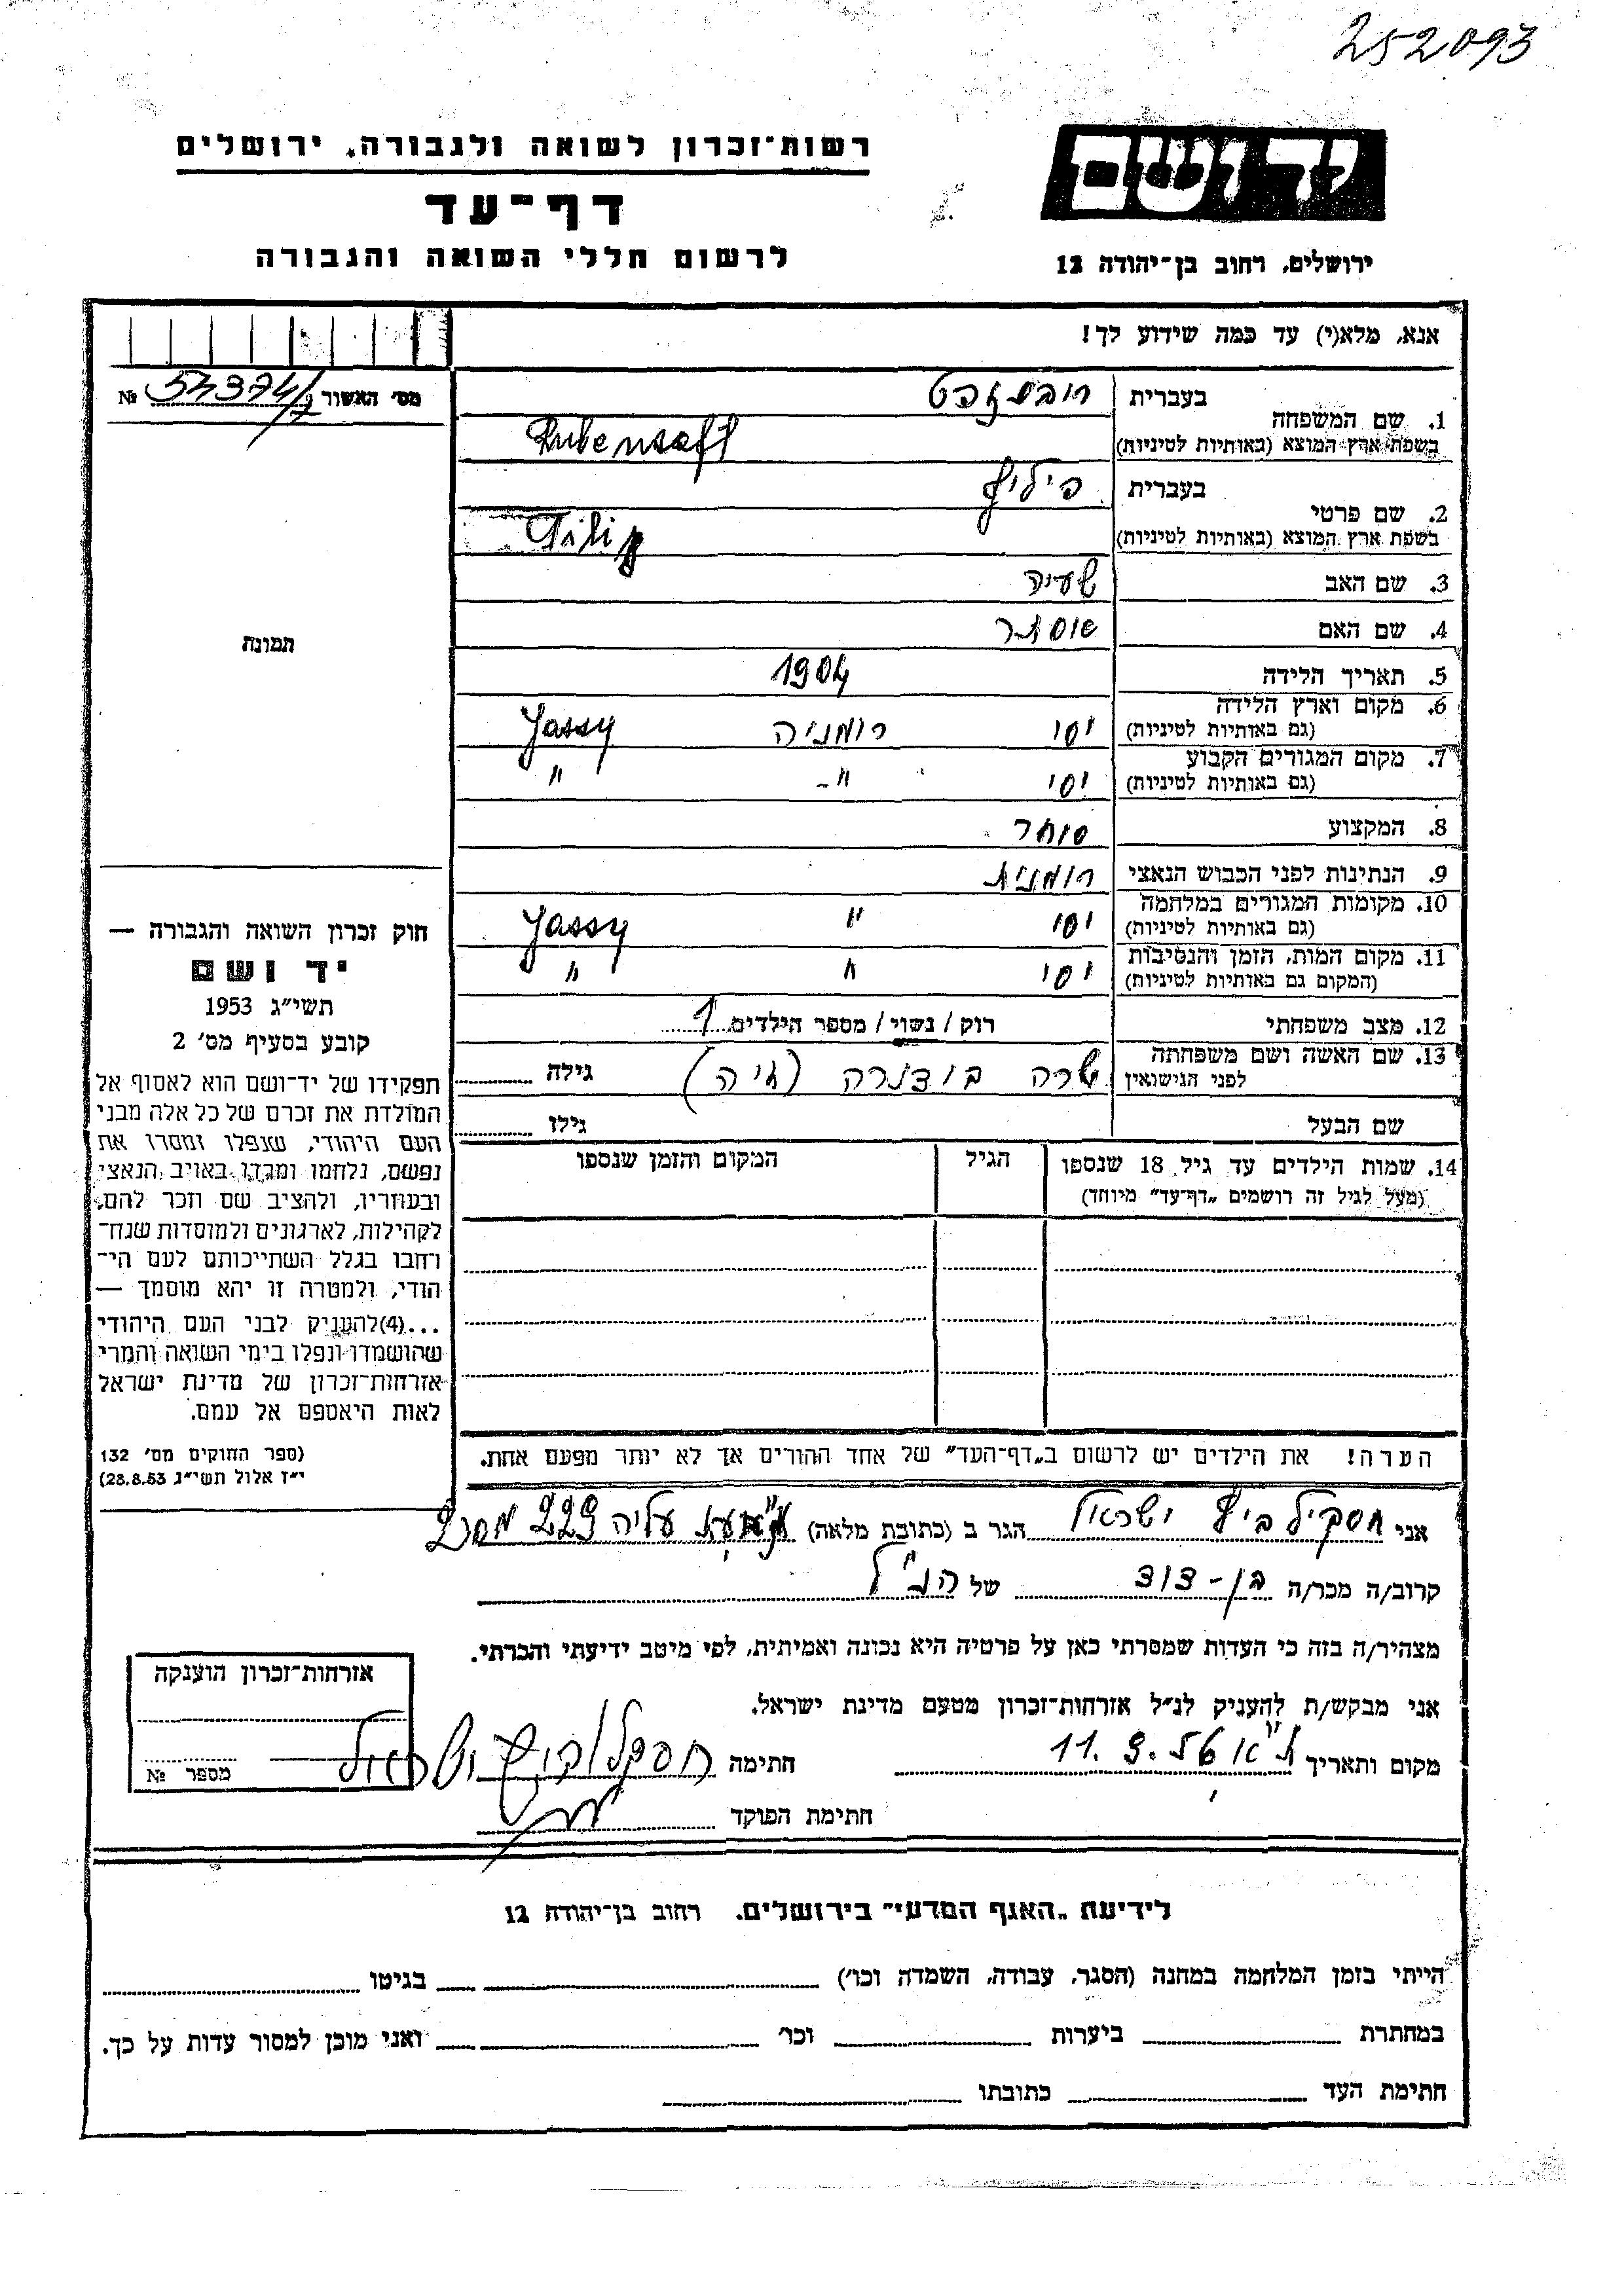 252093
רשות-זכרון לשואה ולגבורה, ירושלים
דף-עד
לרשום חללי השואה והגבורה
יד ושם
ירושלים, רחוב בן-יהודה 12
אנא, מלא(י) עד כמה שידוע לך!
מס' האשור № 54374/
1. שם המשפחה
בעברית
בשפת ארץ המוצא (באותיות לטיניות) Rubensaft
2. שם פרטי
בעברית פיליפ
בשפת ארץ המוצא (באותיות לטיניות) Filip
3. שם האב שעיה
4. שם האם
5. תאריך הלידה 1904
6. מקום וארץ הלידה
(גם באותיות לטיניות) יסי רומניה Jassy
7. מקום המגורים הקבוע
(גם באותיות לטיניות) יסי -"- "
8. המקצוע סוחר
9. הנתינות לפני הכבוש הנאצי רומנית
10. מקומות המגורים במלחמה
(גם באותיות לטיניות) יסי " Jassy
11. מקום המות, הזמן והנסיבות
(המקום גם באותיות לטיניות) יסי " "
12. מצב משפחתי רוק / נשוי / מספר הילדים 1
13. שם האשה ושם משפחתה
לפני הנישואין שרה (חיה) גילה
שם הבעל גילו
14. שמות הילדים עד גיל 18 שנספו
(מעל לגיל זה רושמים „דף-עד" מיוחד)
הגיל
המקום והזמן שנספו
הערה! את הילדים יש לרשום ב„דף-העד" של אחד ההורים אך לא יותר מפעם אחת.
תמונה
חוק זכרון השואה והגבורה —
יד ושם
תשי"ג 1953
קובע בסעיף מס' 2
תפקידו של יד-ושם הוא לאסוף אל
המולדת את זכרם של כל אלה מבני
העם היהודי, שנפלו ומסרו את
נפשם, נלחמו ומרדו באויב הנאצי
ובעוזריו, ולהציב שם וזכר להם,
לקהילות, לארגונים ולמוסדות שנח-
רחבו בגלל השתייכותם לעם הי-
הודי, ולמטרה זו יהא מוסמך —
...(4)להעניק לבני העם היהודי
שהושמדו ונפלו בימי השואה והמרי
אזרחות-זכרון של מדינת ישראל
לאות היאספם אל עמם.
(ספר החוקים מס' 132
י"ז אלול תשי"ג 28.8.53)
אני ישראל הגר ב (כתובת מלאה) עליה 229
קרוב/ה מכר/ה בן-דוד של הנ"ל
מצהיר/ה בזה כי העדות שמסרתי כאן על פרטיה היא נכונה ואמיתית, לפי מיטב ידיעתי והכרתי.
אני מבקש/ת להעניק לנ"ל אזרחות-זכרון מטעם מדינת ישראל.
מקום ותאריך חתימה
חתימת הפוקד
אזרחות-זכרון הוענקה
מספר №
לידיעת „האגף המדעי" בירושלים, רחוב בן-יהודה 12
הייתי בזמן המלחמה במחנה (הסגר, עבודה, השמדה וכו') בגיטו
במחתרת ביערות וכו' ואני מוכן למסור עדות על כך.
חתימת העד כתובתו